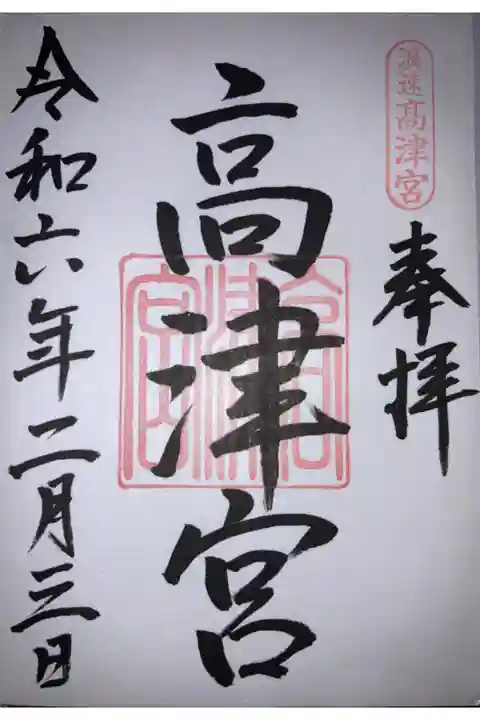 浪速高津宮
奉拝
高津宮
令和六年二月三日